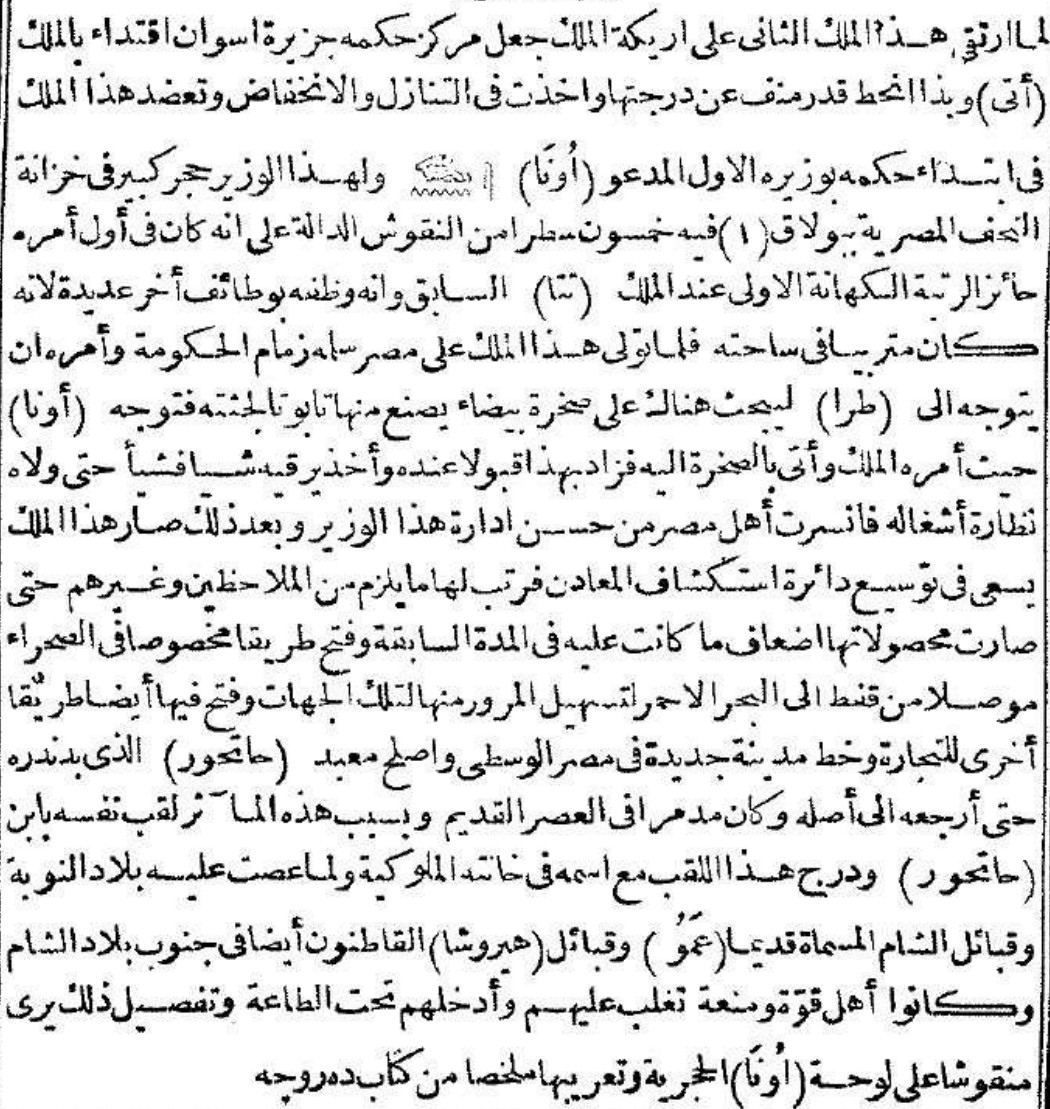 لما ارتقى هذا الملك الثانى على اريكة الملك جعل مركز حكمه جزيرة اسوان اقتداء بالملك
(أتى) وبذا انحط قدر منف عن درجتها واخذت فى التنازل والانخفاض وتعضد هذا الملك
فى ابتداء حكمه بوزيره الاول المدعو (أونَا) ولهذا الوزير حجر كبير فى خزانة
التحف المصرية ببولاق (١) فيه خمسون سطرا من النقوش الدالة على انه كان فى أول أمره
حائز الرتبة الكهانة الاولى عند الملك (تتا) السابق وانه وظفه بوظائف أخر عديدة لانه
كان متربيا فى ساحته فلما تولى هذا الملك على مصر سلمه زمام الحكومة وأمره ان
يتوجه الى (طرا) ليبحث هناك على صخرة بيضاء يصنع منها تابوتا لجثته فتوجه (أونا)
حيث أمره الملك وأتى بالصخرة اليه فزاد بهذا قبولا عنده وأخذ يرقيه شيأ فشيأ حتى ولاه
نظارة أشغاله فانسرت أهل مصر من حسن ادارة هذا الوزير وبعد ذلك صار هذا الملك
يسعى فى توسيع دائرة استكشاف المعادن فرتب لها ما يلزم من الملاحظين وغيرهم حتى
صارت محصولاتها اضعاف ما كانت عليه فى المدة السابقة وفتح طريقا مخصوصا فى الصحراء
موصلا من قفط الى البحر الاحمر لتسهيل المرور منها لتلك الجهات وفتح فيها أيضا طريقا
أخرى للتجارة وخط مدينة جديدة فى مصر الوسطى واصلح معبد (حاتحور) الذى بدندره
حتى أرجعه الى أصله وكان مدمرا فى العصر القديم وبسبب هذه المآثر لقب نفسه بابن
(حاتحور) ودرج هذا اللقب مع اسمه فى خانته الملوكية ولما عصت عليه بلاد النوبة
وقبائل الشام المسماة قديما (عَمَوُ) وقبائل (هيروشا) القاطنون أيضا فى جنوب بلاد الشام
وكانوا أهل قوّة ومنعة تغلب عليهم وأدخلهم تحت الطاعة وتفصيل ذلك يرى
منقوشا على لوحة (أونَا) الحجرية وتعريبها ملخصا من كتاب ده روجه